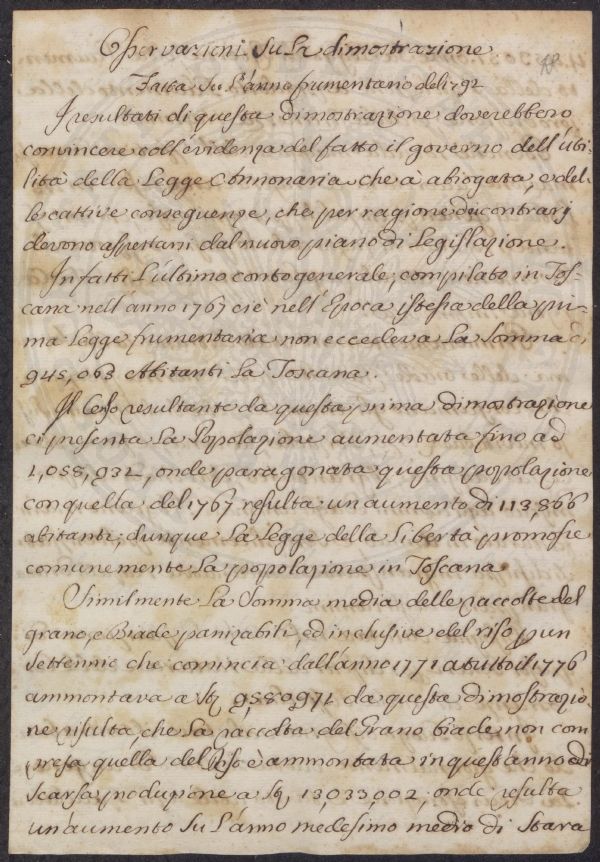 Osservazioni Su La dimostrazione
Fatta Su L'anno frumentario del 1792
I resultati di questa dimostrazione doverebbero
convincere coll'evidenza del fatto il governo dell'uti-
lità della Legge Annonaria che à abrogata, e del-
le cattive conseguenze, che per ragione dei contrarj
devono aspettarsi dal nuovo piano di Legislazione.
Infatti L'ultimo conto generale, compilato in Tos-
cana nell'anno 1767 ciè nell'Epoca istessa della pri-
ma Legge frumentaria non eccedeva La Somma di
945,063 Abitanti La Toscana.
Il Censo resultante da questa prima dimostrazione
ci presenta La Popolazione aumentata fino ad
1,058,932, onde paragonata questa popolazione
con quella del 1767 resulta un aumento di 113,866
abitanti; dunque La Legge della Libertà promosse
comunemente La popolazione in Toscana
Similmente La Somma media delle raccolte del
grano, e Biade panizabili, ed inclusive del riso p un
settennio che comincia dall'anno 1771 a tutto il 1776
ammontava a Sta 9,580,971 da questa dimostrazio-
ne risulta, che La raccolta del Grano biade non com
presa quella del Riso è ammontata in quest'anno di
scarsa produzione a Sta 13,033,002, onde resulta
un aumento Su L'anno medesimo medio di Stara